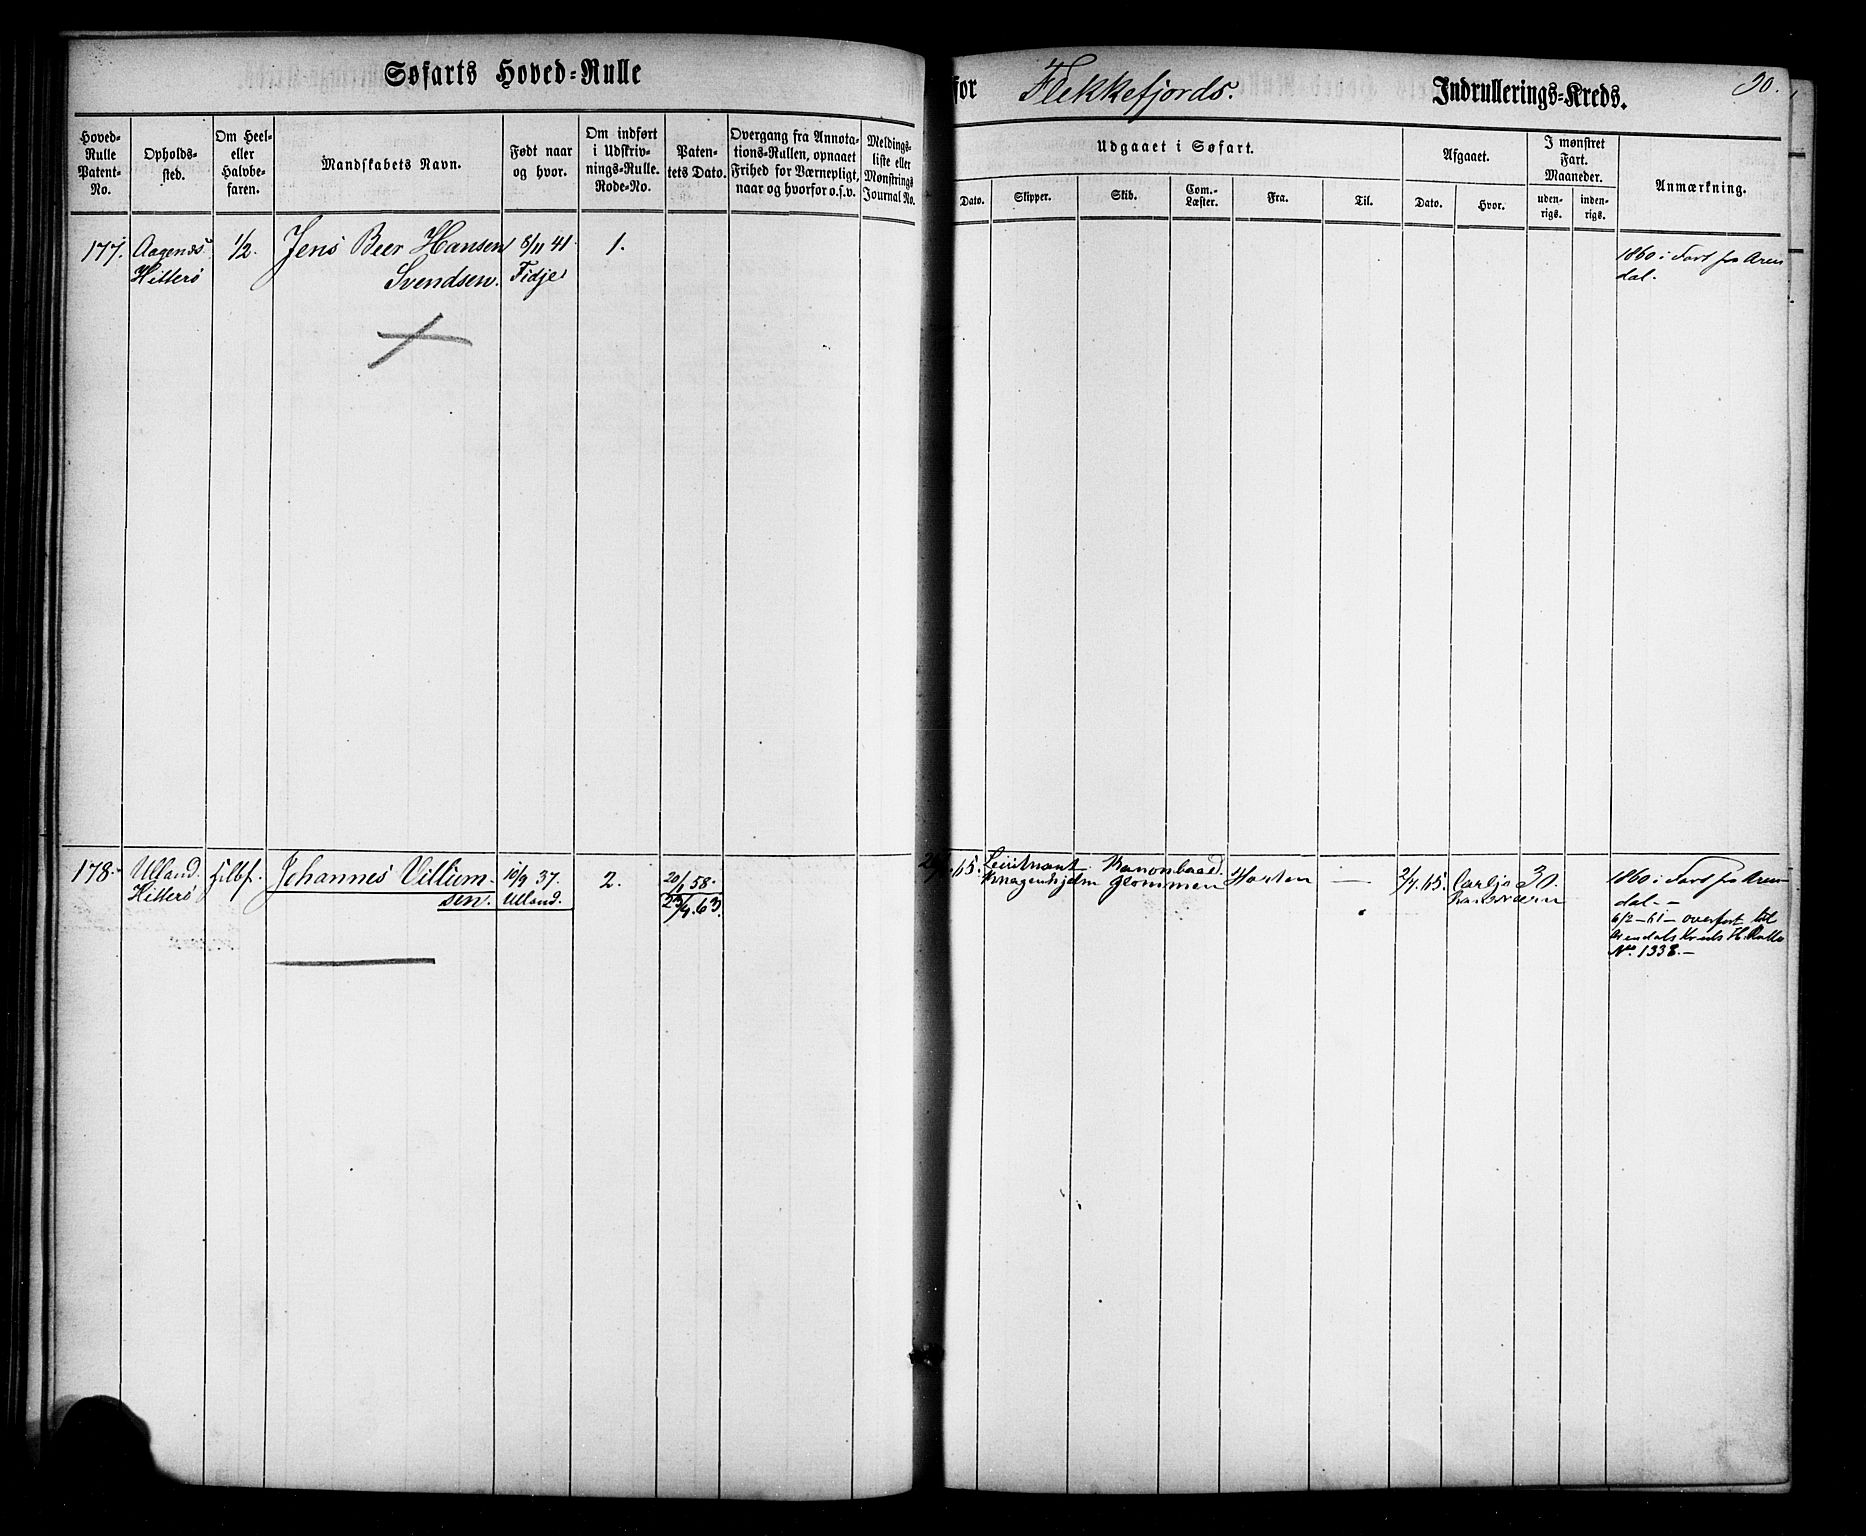 Søfarts Hoved-Rulle
for Flekkefjords. Indrullerings-Kreds.
90.
Hoved-Rulle Patent-No.
Opholds-sted.
Om Heel- eller Halvbe-faren.
Mandskabets Navn.
Født naar og hvor.
Om indført i Udskriv-nings-Rulle. Rode-No.
Paten-tets Dato.
Overgang fra Annota-tions-Rullen, opnaaet Frihed for Værnepligt, naar og hvorfor o.s.v.
Meldings-liste eller Mønstrings Journal No.
Udgaaet i Søfart.
Dato.
Skipper.
Skib.
Com.-Læster.
Fra.
Til.
Afgaaet.
Dato.
Hvor.
I mønstret Fart. Maaneder.
uden-rigs.
inden-rigs.
Anmærkning.
177. Aagenæs Hitterø
1/2.
Jens Beer Hansen
Svendsen.
8/11 41
Fidje
1.
1860 i Fart fra Aren
dal.
178. Ulland. Hitterø
Johannes Villum-
sen.
10/9 37.
Ulland.
2.
20/1 58.
63.
65.
Leiutnant
Knagenhjelm
Kanonbaad
Glommen
Horten
—
2/7 65.
Carljo
hansværn
30.
1860 i Fart fra Aren
dal.-
6/2-61- overført til
Arendals Kreds H. Rulle
No. 1338.-